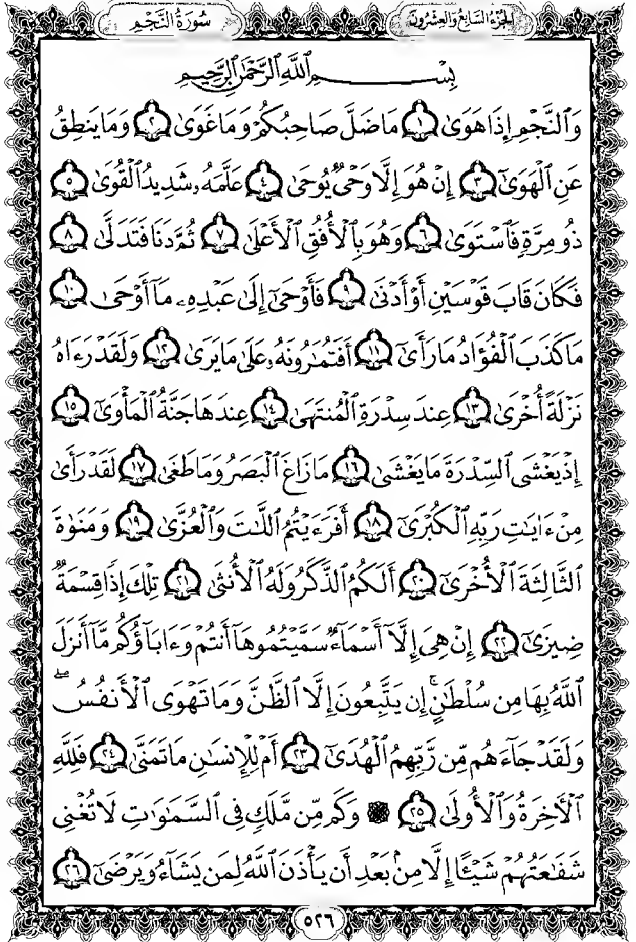 سُورَةُ النَّجْمِ الجُزْءُ السَّابِعُ وَالعِشْرُونَ
بِسْمِ اللَّهِ الرَّحْمَٰنِ الرَّحِيمِ
وَالنَّجْمِ إِذَا هَوَىٰ ١ مَا ضَلَّ صَاحِبُكُمْ وَمَا غَوَىٰ ٢ وَمَا يَنطِقُ
عَنِ الْهَوَىٰٓ ٣ إِنْ هُوَ إِلَّا وَحْيٌ يُوحَىٰ ٤ عَلَّمَهُۥ شَدِيدُ الْقُوَىٰ ٥
ذُو مِرَّةٍ فَاسْتَوَىٰ ٦ وَهُوَ بِالْأُفُقِ الْأَعْلَىٰ ٧ ثُمَّ دَنَا فَتَدَلَّىٰ ٨
فَكَانَ قَابَ قَوْسَيْنِ أَوْ أَدْنَىٰ ٩ فَأَوْحَىٰٓ إِلَىٰ عَبْدِهِۦ مَآ أَوْحَىٰ ١٠
مَا كَذَبَ الْفُؤَادُ مَا رَأَىٰٓ ١١ أَفَتُمَٰرُونَهُۥ عَلَىٰ مَا يَرَىٰ ١٢ وَلَقَدْ رَءَاهُ
نَزْلَةً أُخْرَىٰ ١٣ عِندَ سِدْرَةِ الْمُنتَهَىٰ ١٤ عِندَهَا جَنَّةُ الْمَأْوَىٰٓ ١٥
إِذْ يَغْشَى السِّدْرَةَ مَا يَغْشَىٰ ١٦ مَا زَاغَ الْبَصَرُ وَمَا طَغَىٰ ١٧ لَقَدْ رَأَىٰ
مِنْ ءَايَٰتِ رَبِّهِ الْكُبْرَىٰٓ ١٨ أَفَرَءَيْتُمُ اللَّٰتَ وَالْعُزَّىٰ ١٩ وَمَنَوٰةَ
الثَّالِثَةَ الْأُخْرَىٰٓ ٢٠ أَلَكُمُ الذَّكَرُ وَلَهُ الْأُنثَىٰ ٢١ تِلْكَ إِذًا قِسْمَةٌ
ضِيزَىٰٓ ٢٢ إِنْ هِيَ إِلَّآ أَسْمَآءٌ سَمَّيْتُمُوهَآ أَنتُمْ وَءَابَآؤُكُم مَّآ أَنزَلَ
اللَّهُ بِهَا مِن سُلْطَٰنٍ ۚ إِن يَتَّبِعُونَ إِلَّا الظَّنَّ وَمَا تَهْوَى الْأَنفُسُ ۖ
وَلَقَدْ جَآءَهُم مِّن رَّبِّهِمُ الْهُدَىٰٓ ٢٣ أَمْ لِلْإِنسَٰنِ مَا تَمَنَّىٰ ٢٤ فَلِلَّهِ
الْءَاخِرَةُ وَالْأُولَىٰ ٢٥ ۞ وَكَم مِّن مَّلَكٍ فِي السَّمَٰوَٰتِ لَا تُغْنِي
شَفَٰعَتُهُمْ شَيْـًٔا إِلَّا مِنۢ بَعْدِ أَن يَأْذَنَ اللَّهُ لِمَن يَشَآءُ وَيَرْضَىٰٓ ٢٦
٥٢٦